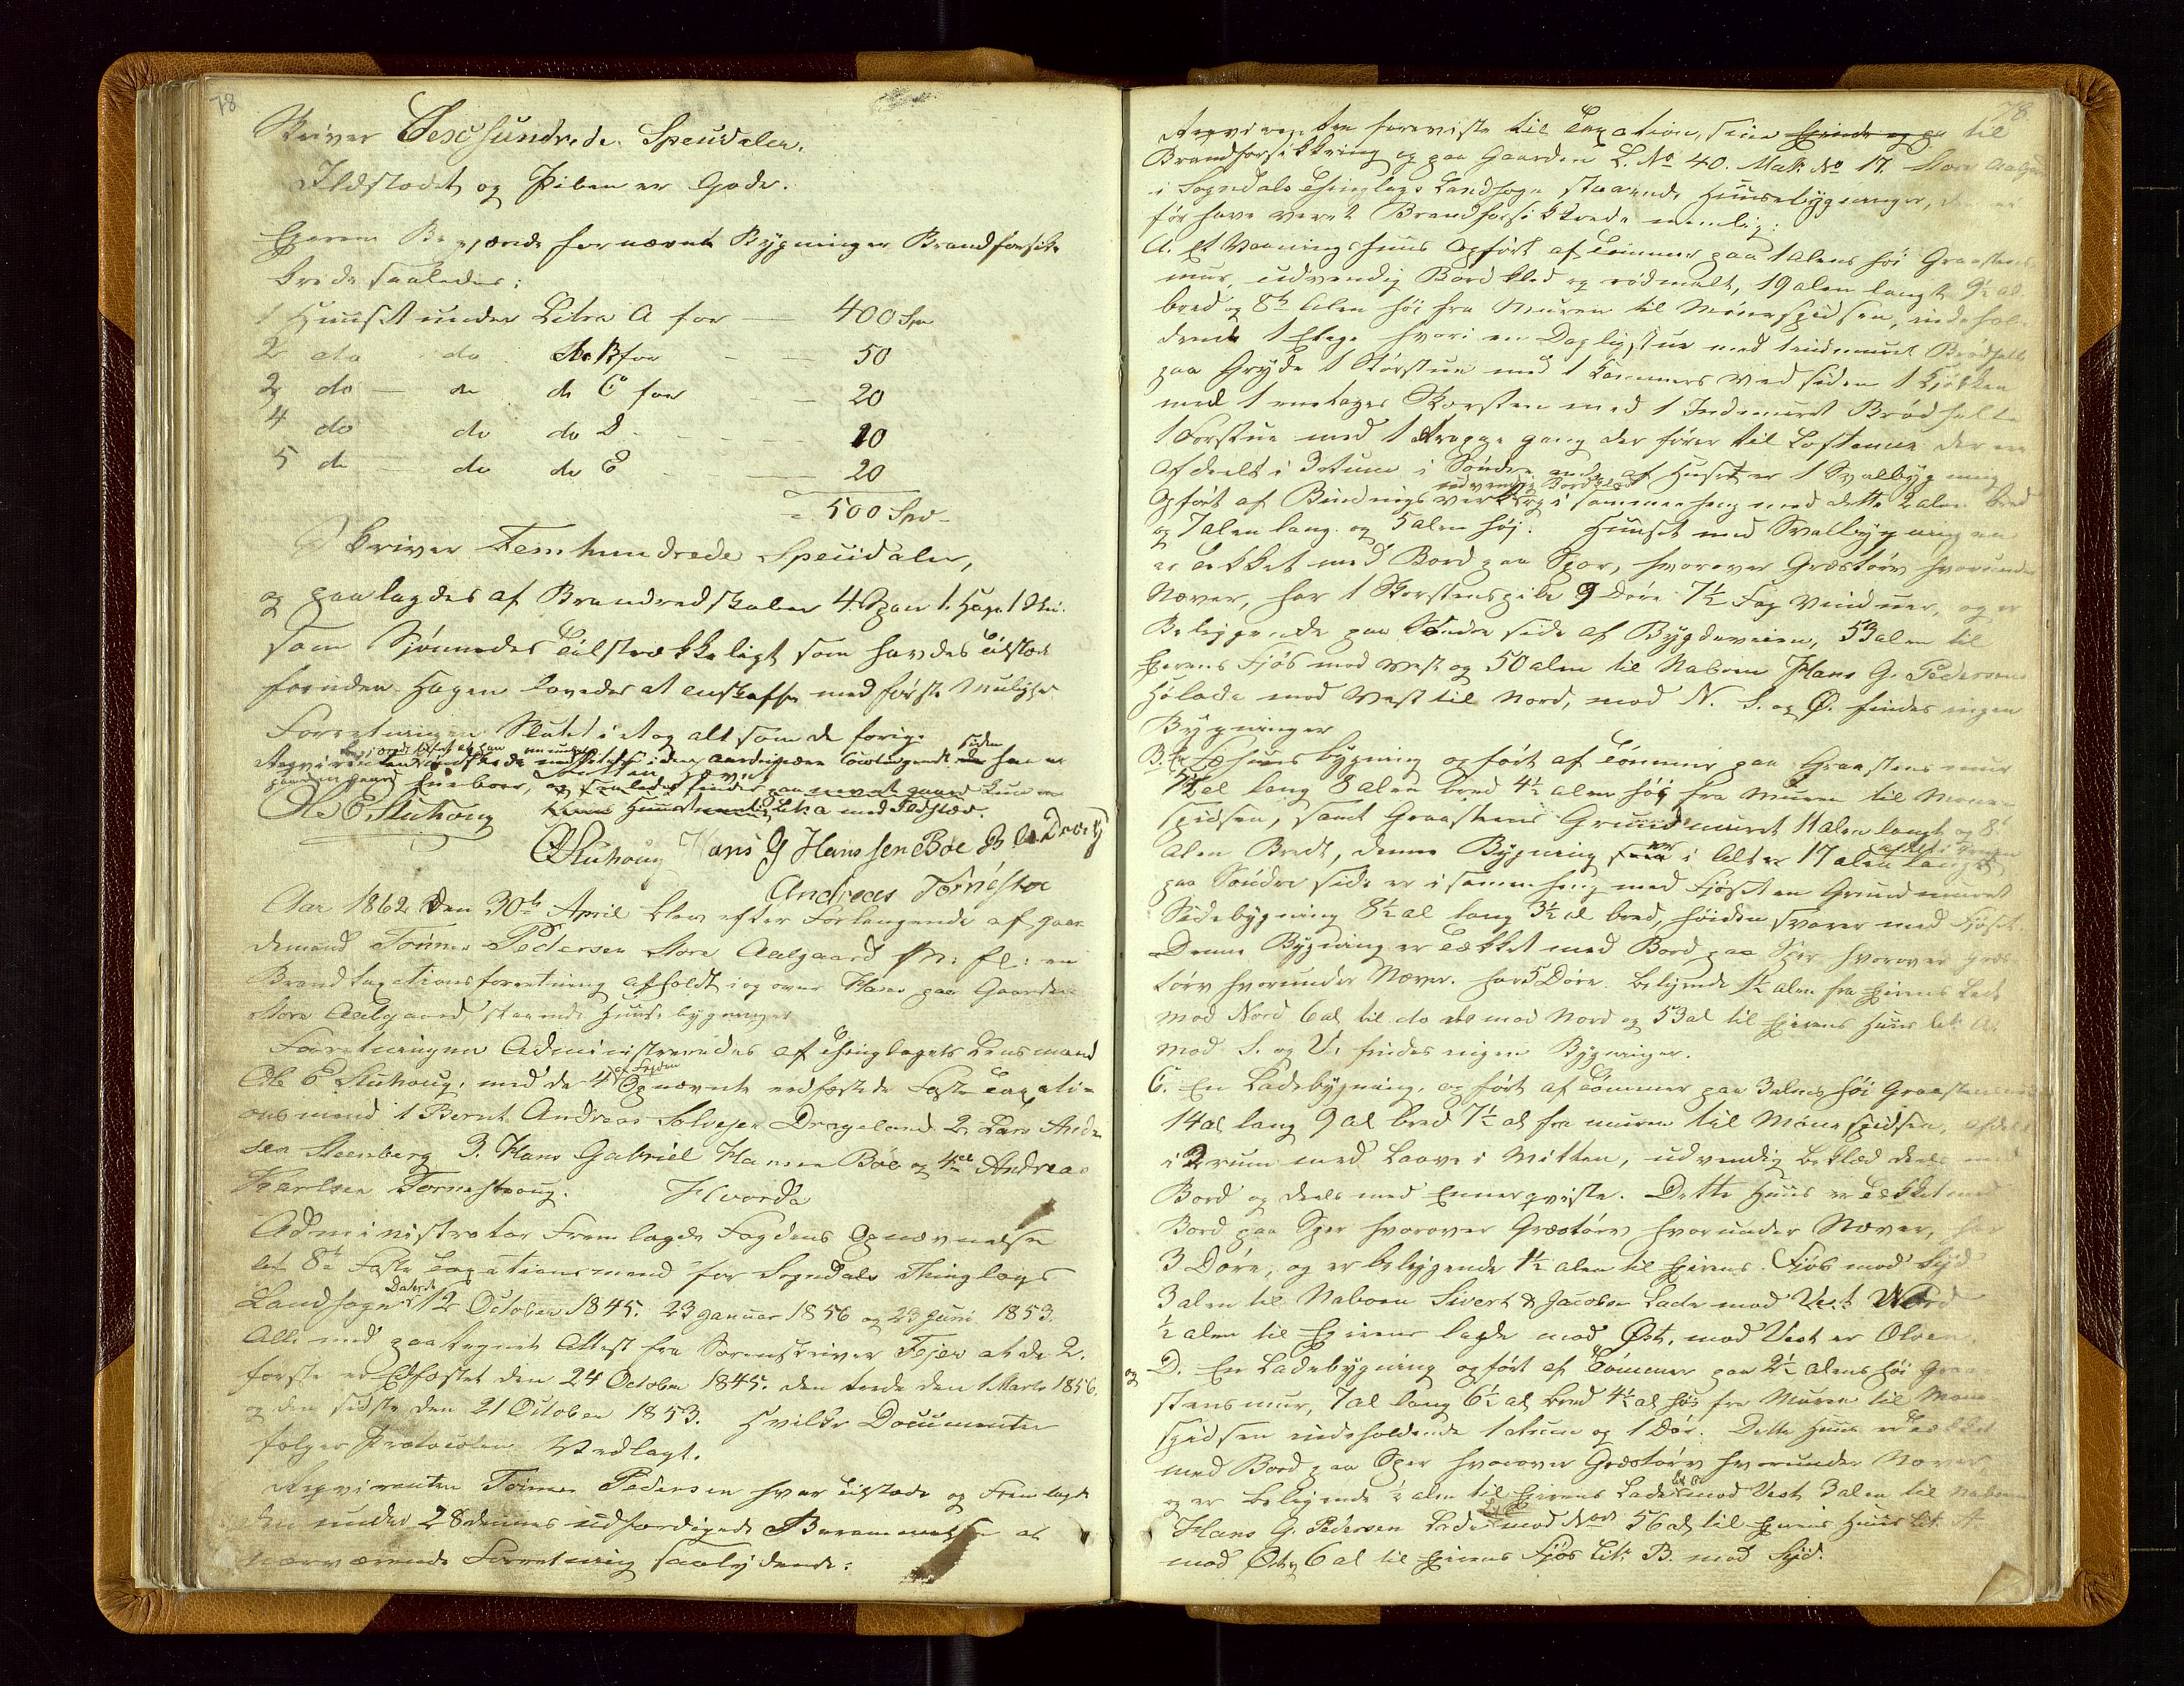 78
Skriver Sexhundrede Speciedaler.
Ildstedet og Piben er Gode.
Eieren Begjærede fornævnte Bygninger Brandforsik-
krede saaledes:
1 Huuset under Litra A for — 400 Spd
2 do do do B for — 50
2 do — do do C for — 20
4 do do do D — 10
5 do — do do E — 20
= 500 Spd
Skriver Femhundrede Speciedaler,
og paalagdes af Brandredskaber 4 Span 1 Hage 1
som Skjønnedes Tilstrækkeligt som havdes tilstæde
foruden Hagen lovedes at anskaffe med første Mulighed
Forretningen Sluttet i et og alt som de forige
Ole E. Stuhoug Litra A med Ildsted.
O Stuhoug Hans G Hanssen Bøe B A Drag
Andreas Tørnestou
Aar 1862 den 30te April blev efter Forlangende af Gaar-
demand Tønnes Pedersen Store Aalgaard m: fl: en
Brandtaxationsforretning afholdt i og over Hans paa Gaarden
Store Aalgaard staaende Huusebygninger
Forretningen Administreredes af Thinglagets Lensmand
Ole E Stuhoug, med de 4 af Fogden Opnævnte edfæstede Faste Taxati-
onsmænd 1 Bernt Andreas Solvesen Drageland 2 Lars Ande
sen Steenberg 3. Hans Gabriel Hansen Bøe og 4de Andreas
Karlsen Tørnestoug. Hvorda
Administrator Fremlagde Fogdens Opnævnelse
af 8te Faste Taxationsmænd for Sogndals Thinglags
Landsogn Daterede 12 October 1845. 23 Januar 1856 og 23 Juni 1853.
Alle med paategnet Attest fra Sorenskriver Fejer at de 2.
første er Edfæstet den 24 October 1845. den trede den 1 Marts 1856.
og den sidste den 21 October 1853. Hvilke Documenter
følger Protocolen Vedlagt.
Reqvirenten Tønnes Pedersen hvar tilstæde og Fremlagde
den under 28 dennes udfærdigede Berammelse af
nærværende Forretning saalydende:
78.
Reqvirenten foreviste til Taxation, sine Eiende og paa til
Brandforsikkring og paa Gaarden L. No 40. Mat. No 17. Store Aalgaard
i Sogndals Thinglags Landsogn staaende Huusebygninger, der ei
før have været Brandforsikkrede nemlig:
A. Et Vaaningshuus Opført af Tømmer paa 1 Alens høi Graastens-
mur, udvendig Bordklæd og rødmalt, 19 alen langt 9½ al
bred og 8½ Alen høi fra Muren til Mønespidsen, indehol-
dende 1 Etage hvori en Dagligstue med 1 indmuret Brødhelle
paa Gryde 1 Storstue med 1 Kammers ved siden 1 Kjøkken
med 1 enetages Skorsten med 1 Indmuret Brødhelle
1 Forstue med 1 Trappegang der fører til Loftene der er
Afdeelt i 3 Rum i Søndre ende af Huset er 1 Svalbygning
Opført af Bindingsverk udvendig Bordklæd i sammenheng med dette 2 alen bred
og 7 alen lang og 5 alen høj. Huuset med Svalbygningen
er tækket med Bord paa Sper, hvorover Græstørv hvorunder
Næver, har 1 Skorstenspibe 9 Døre 7½ Fag Vinduer, og er
Beliggende paa Søndre side af Bygdeveien, 53 alen til
Eierens Fjøs mod Vest og 50 alen til Naboen Hans G. Pedersens
Hølade mod Vest til Nord, mod N. S. og Ø. findes ingen
Bygninger
B. En Fæhuusbygning opført af Tømmer paa Graastens mur
al lang 8 alen bred 4½ alen høi fra Muren til Møne-
spidsen, samt Graasteens Grundmuret 11 alen langt og 8½
alen Bredt, denne Bygning er i Alt er 17 alen lang
paa Søndre side er i samenheng med Fjøset en Grundmuret
Sidebygning 8½ al lang 3½ al bred, høiden svarer med Fjøset.
Denne Bygning er Tækket med Bord paa Sper hvorover Græs-
tørv hvorunder Næver. har 5 Døre. Beliggende 1½ alen fra Eierens Lade
mod Nord 6 al til do mod Nord og 53 al til Eierens Huus lit. A.
mod S. og V. findes ingen Bygninger.
C. En Ladebygning, opført af Tømmer paa 3 alens høi Graastensmur
14 al lang 9 al bred 7½ al fra muren til Mønespidsen, afdelt
i 2 rum med Laave i Mitten, udvendig beklæd deels med
Bord og deels med Ennerqviste. Dette Huus er Tækket med
Bord paa Sper hvorover Græstørv hvorunder Næver, har
3 Døre, og er beliggende 1½ alen til Eierens Fjøs mod Syd
3 alen til Naboen Sivert Jacobsen Lade mod Vest Nord
½ alen til Eierens lade mod Øst, mod Vest er Aben.
og D. En Ladebygning opført af Tømmer paa 2½ alens høi Graa-
stensmur, 7 al lang 6½ al bred 4½ al høi fra Muren til Møne
spidsen indeholdende 1 Rum og 1 Dør. Dette Huus er tækket
med Bord paa Sper hvorover Græstørv hvorunder Næver
og er beliggende ½ alen til Eierens Lade Lit C mod Vest 3 alen til Naboen
Hans G. Pedersen Lade mod Nord 56 al til Eierens Huus lit. A
mod Øst, 6 al til Eierens Fjøs Lit. B. mod Syd.